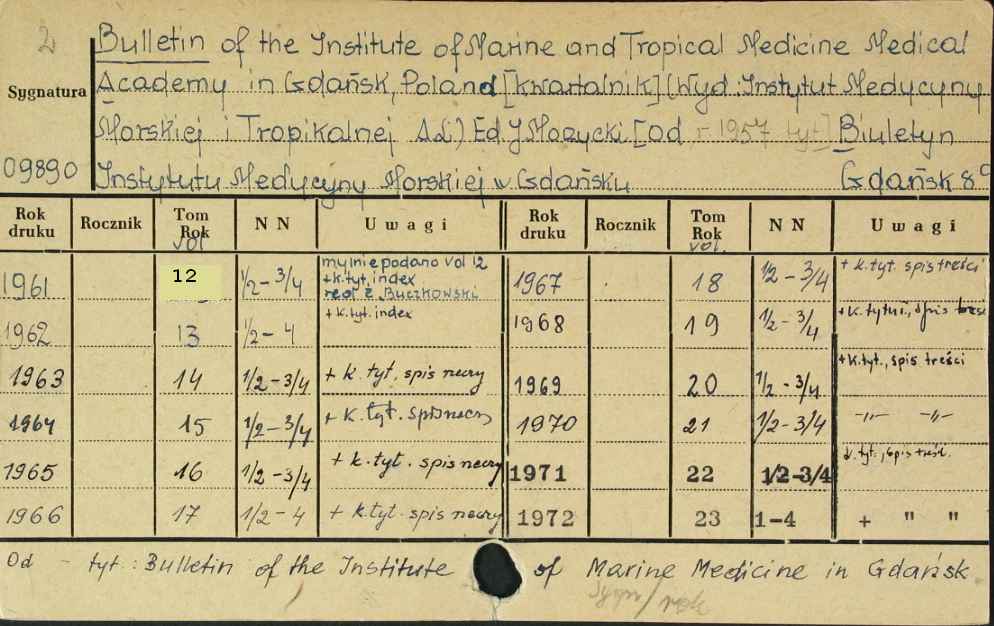 2
Bulletin of the Institute of Marine and Tropical Medicine Medical
Sygnatura Academy in Gdańsk, Poland [kwartalnik] (Wyd: Instytut Medycyny
Morskiej i Tropikalnej Ad.) Ed. J Morzycki [Od r. 1957 tyt] Biuletyn
09890 Instytutu Medycyny Morskiej w Gdańsku Gdańsk 8°
Rok druku Rocznik Tom Rok vol N N Uwagi Rok druku Rocznik Tom Rok vol. N N Uwagi
1961 12 1/2-3/4 mylnie podano vol 12 +k.tyt, index red. Z. Buczkowski 1967 18 1/2-3/4 + k.tyt. spis treści
1962 13 1/2-4 + k.tyt. index 1968 19 1/2-3/4 +k. tytuł., spis treści
1963 14 1/2-3/4 + k. tyt. spis rzeczy 1969 20 1/2-3/4 +k.tyt., spis treści
1964 15 1/2-3/4 + k. tyt. spis rzeczy 1970 21 1/2-3/4 -"- -"-
1965 16 1/2-3/4 + k. tyt. spis rzeczy 1971 22 1/2-3/4 k. tyt., spis treśc.
1966 17 1/2-4 + k.tyt. spis rzeczy 1972 23 1-4 + " "
Od - tyt: Bulletin of the Institute of Marine Medicine in Gdańsk
Sygn/rok